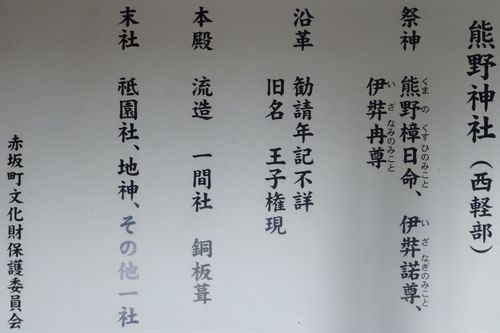 熊野神社（西軽部）
祭神　熊野樟日命、伊弉諾尊、
くまのくすひのみこと　いざなぎのみこと
伊弉冉尊
いざなみのみこと
沿革　勧請年記不詳
旧名　王子権現
本殿　流造　一間社　銅板葺
末社　祇園社、地神、その他一社
赤坂町文化財保護委員会